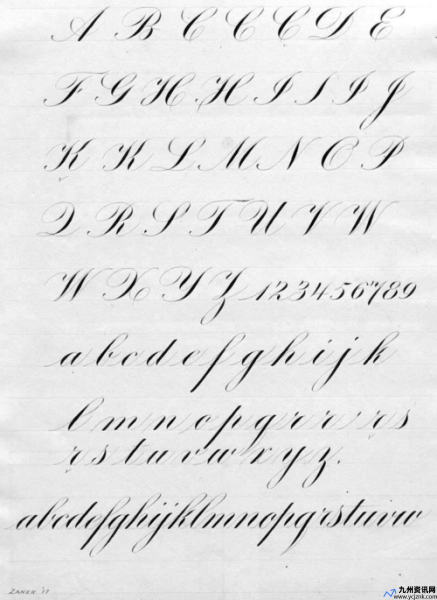 A B C C C D E
F G H H I I I J
K K L M N O P
Q R S T U V W
W X Y Z 1 2 3 4 5 6 7 8 9
a b c d e f g h i j k
l m n o p q r r r s
r s t u v w x y z.
abcdefghijklmnopqrstuvw
ZANER '17
九州资讯网
www.ycjznk.com